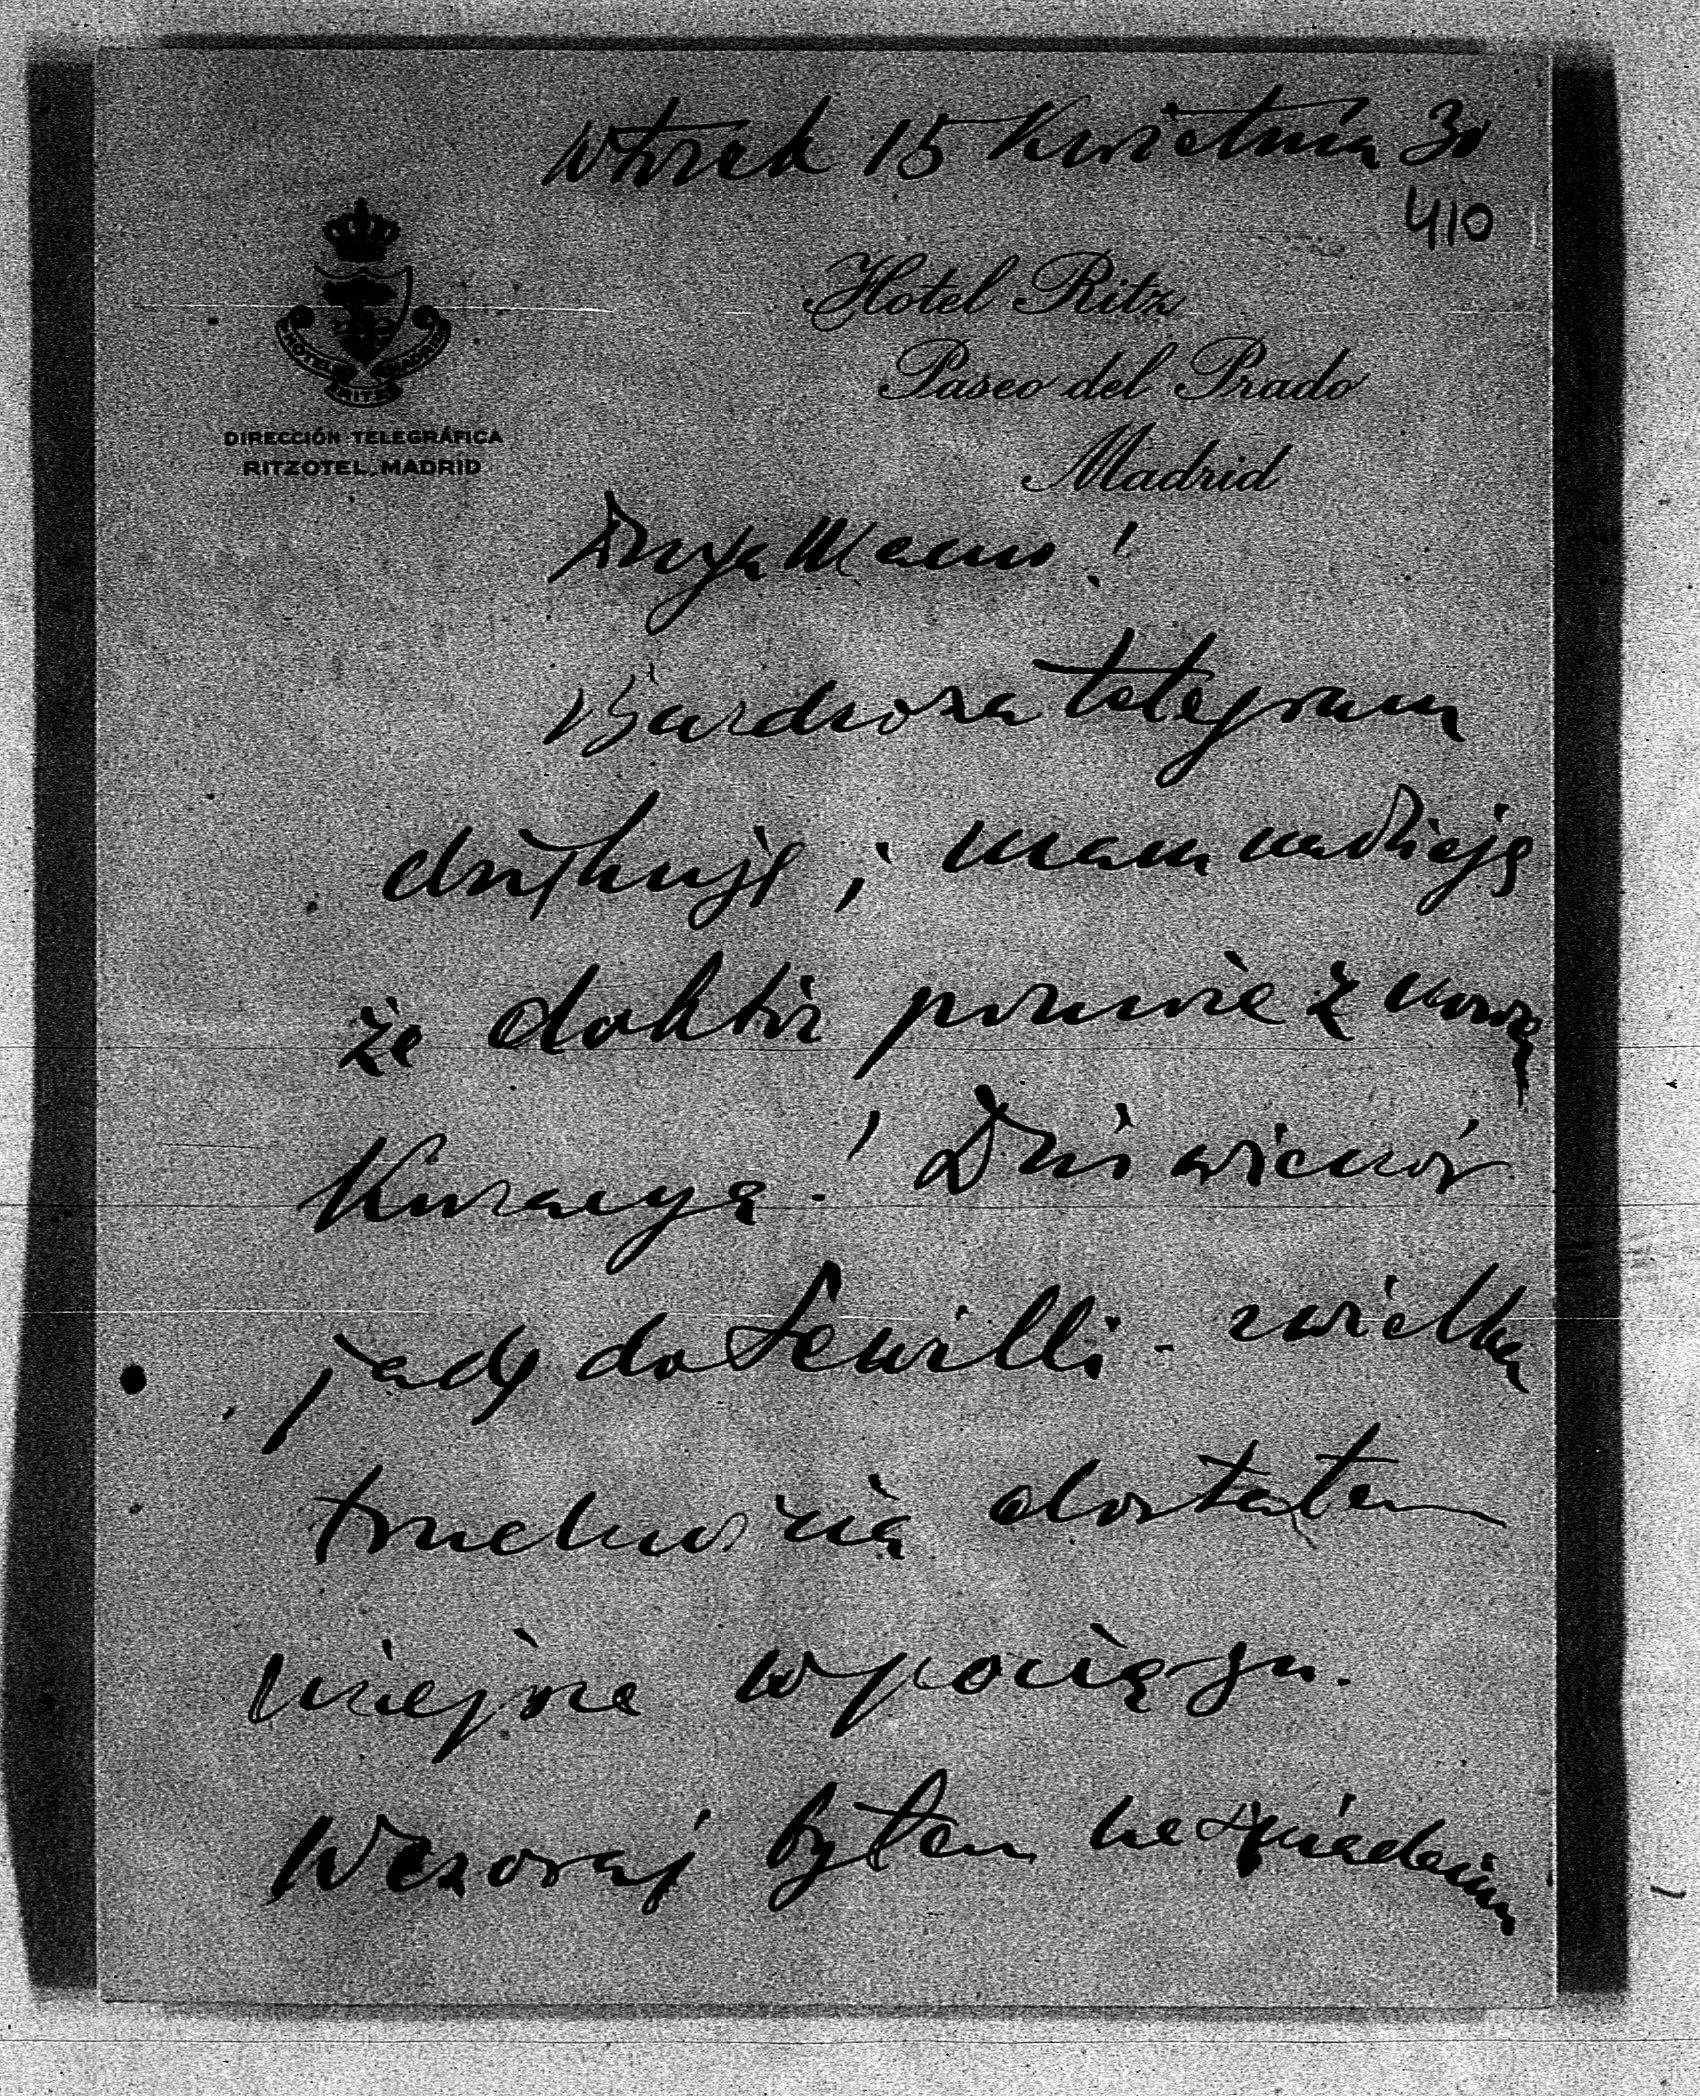 Wtorek 15 Kwietnia 30
410
HOTEL RITZ MADRID
DIRECCIÓN TELEGRÁFICA
RITZOTEL, MADRID
Hotel Ritz
Paseo del Prado
Madrid
Droga Mamo!
Bardzo za telegram
dziękuję, mam nadzieję
że doktór pomoże z nową
Kuracyą! Dziś wieczór
jadę do Sewilli - z wielką
trudnością dostałem
miejsce w pociągu.
Wczoraj byłem na śniadaniu